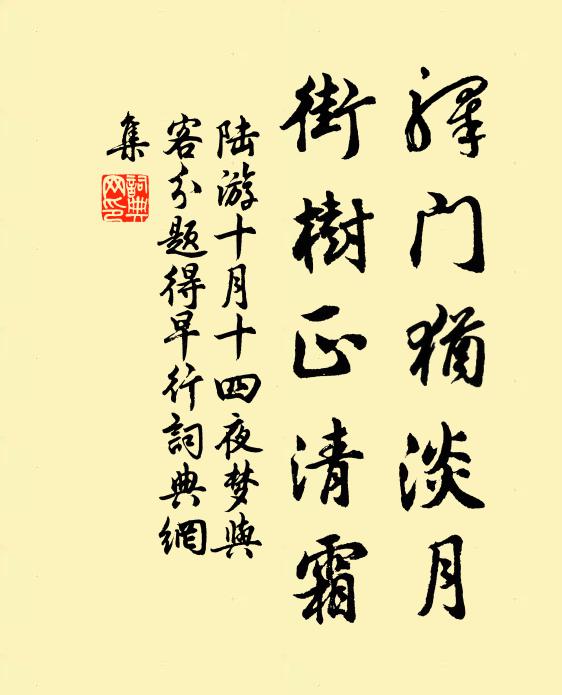 驛門猶淡月
街樹正清霜
陸游十月十四夜梦與
客分題得早行詞典網
集
詞典
网印